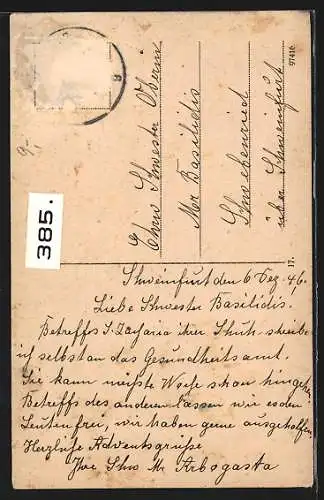 9,-
385.
97416
17.
Ehrw. Schwester Oberin
Mar. Basilidis
Schwebenried
über Schweinfurt
Schweinfurt den 6 Dez. 46.
Liebe Schwester Basilidis.
Betreffs S. Zayaria ihre Schuh schreibe
ich selbst an das Gesundheitsamt.
Sie kann nächste Woche schon hingehen
Betreffs des anderen lassen wir es den
Leuten frei, wir haben gerne ausgeholfen
Herzliche Adventsgrüße
Ihre Schw. M. Arbogasta